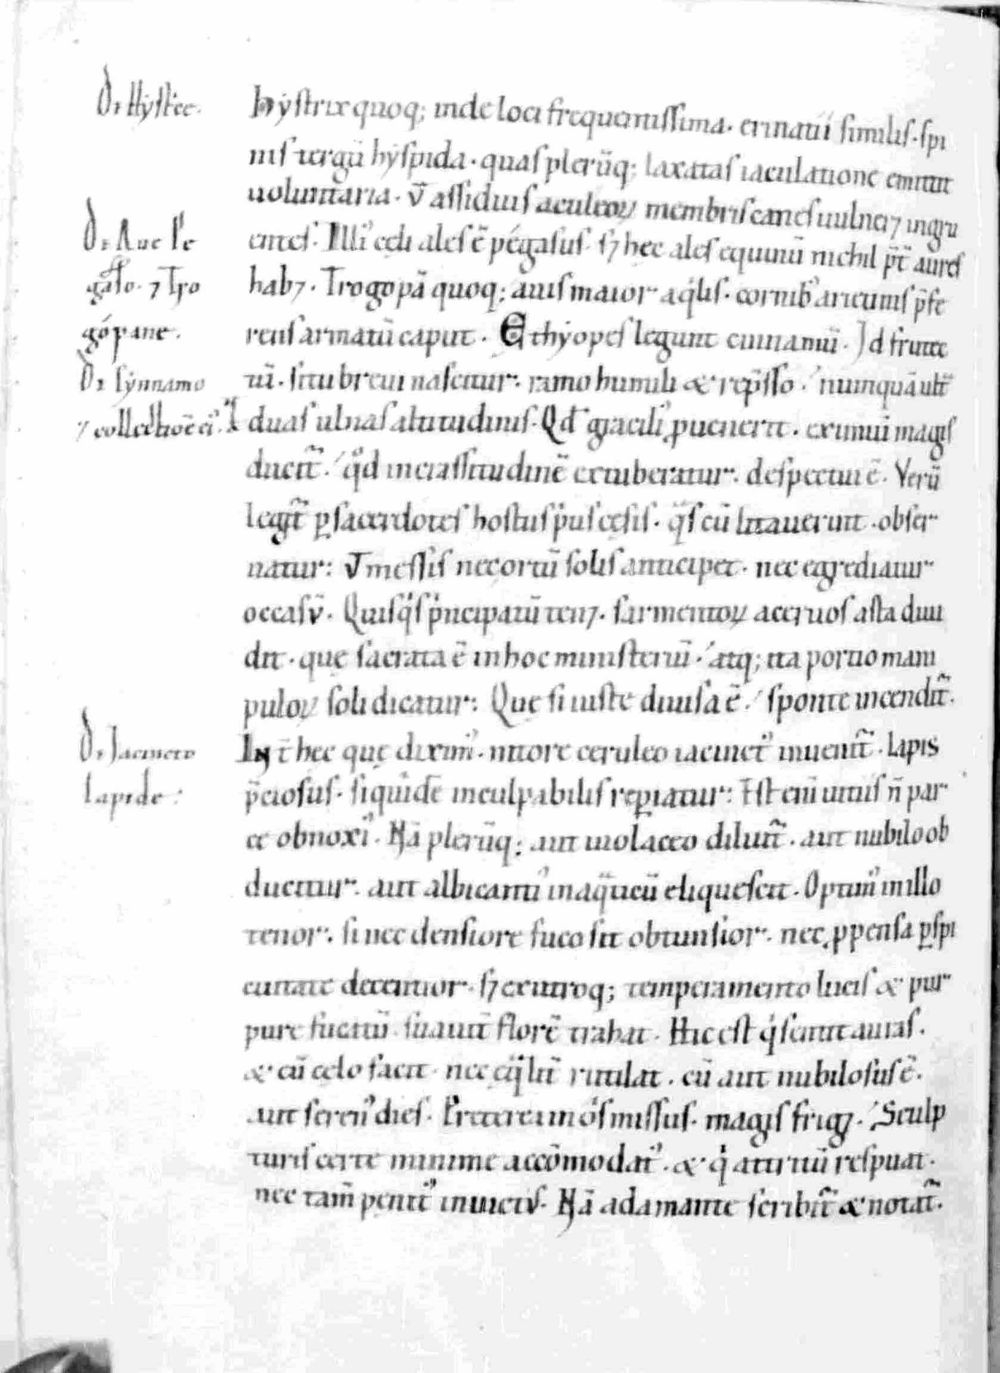 De Hystrice.
Hystrix quoq; inde loci frequentissima. erinatii similis. spi
nis tergū hyspida. quas plerūq; laxatas iaculatione emittit
uoluntaria. ū assiduis aculeoꝝ membris canes uulnet ⁊ ingru
De Aue Pe
entes. Illi celi ales ē pegasus. sꝫ hec ales equinū nichil p̄t aures
gaso. ⁊ Tro
habꝫ. Trogopā quoq; auis maior aq̇lis. cornib' arietinis p̄fe
gopane.
rens armatū caput. Ethyopes legunt cinnamū. Id frutec
De Cynnamo
tū. situ breui nascitur. ramo humili & rep̄sso. numquā ult̄
⁊ collectiōe ei'.
duas ulnas altitudinis. Qd' gracili' ꝓuenerit. eximiū magis
ducit̄. qd̓ in crassitudinē extuberatur. despectui ē. Verū
legit̄ ꝑ sacerdotes hostiis p'us cesis. q̄s cū litauerint. obser
uatur: Vt messis nec ortū solis anticipet. nec egrediatur
occasū. Quisq's p'ncipatū tenꝫ. sarmentoꝝ aceruos asta diui
dit. que sacrata ē in hoc ministeriū. atq; ita portio mani
puloꝝ soli dicatur: Que si iuste diuisa ē. sponte incendit̄.
De Jacincto
Int̄ hec que dixim'. nitore ceruleo iacinct' inuenit̄. lapis
lapide:
p̄ciosus. siquidē inculpabilis reꝑiatur: Est eni uitiis n̄ par
ce obnoxi'. Nā plerūq; aut uiolaceo diluit̄. aut nubilo ob
ducitur. aut albicanti' in aq̄ticū eliquescit. Optim' in illo
tenor. si nec densiore fuco sit obtunsior. nec ꝓpensa ꝑspi
cuitate decentior. sꝫ ex utroq; temperamento lucis & pur
pure fucatū suauit̄ florē trahat. Hic est q' sentit auras.
& cū celo facit. nec eq̄lit̄ rutilat. cū aut nubilosus ē.
aut seren' dies. Preterea in os missus. magis frigꝫ. Sculp
turis certe minime accōmodat'. & q' attritū respuat.
nec tam̄ penit' inuict'. Nā adamante scribit̄ & notat̄.